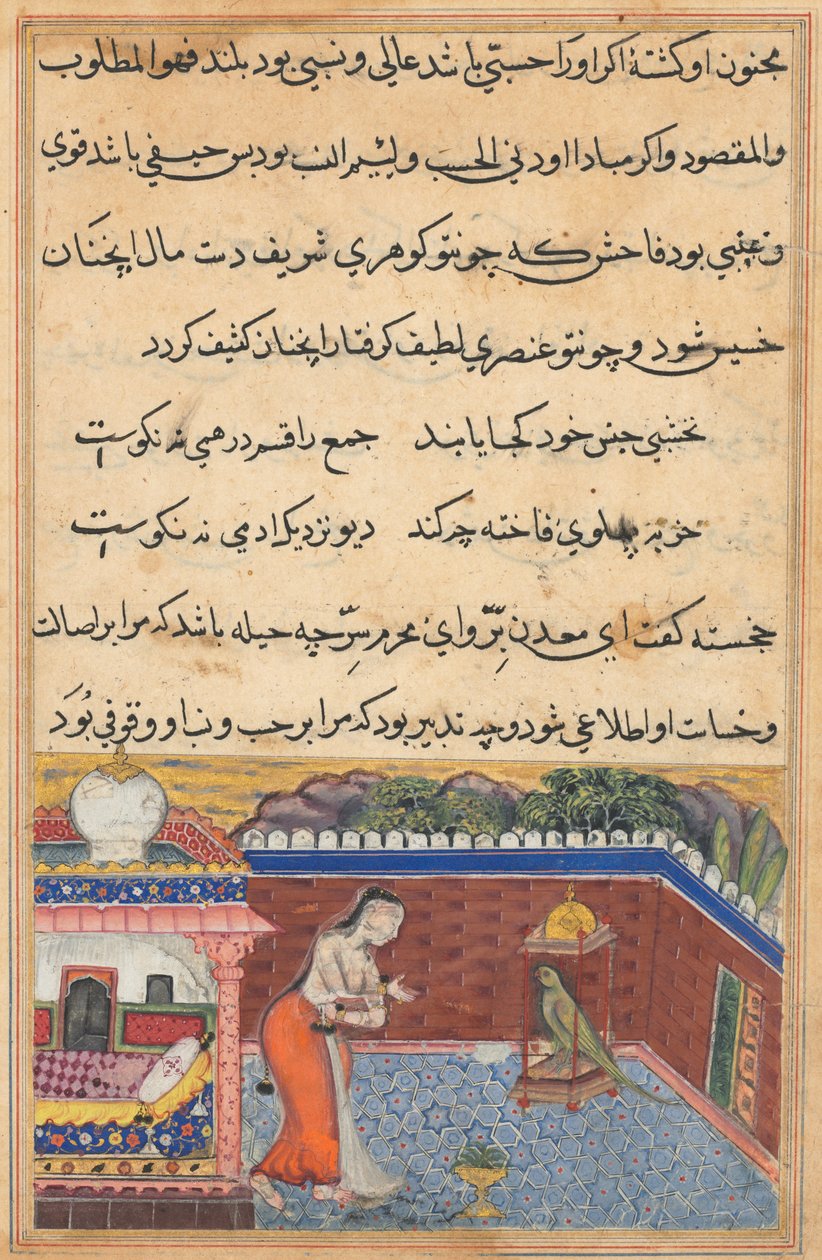 مجنون او کشتهٔ اکر اورا حسبّی باشد عالی و نسبی بود بلند فهوا لمطلوب
والمقصود واکر مبادا اودنی الحسب و لئیم النسب بود بس حیفی باشد قوی
و عیبی بود فاحش که چونتو کوهری شریف دست مال اینچنان
خسیس شود و چونتو عنصری لطیف کرفتار اینچنان کثیف کردد
نخشبی جنس خود کجا یابند جمع را قسم درهمی نه نکوست
خر به پهلوی فاخته چه کند دیو نزدیک ادمی نه نکوست
خجسته کفت ای معدن بِرّ و ای محرم سِرّ چه حیله باشد که مرا بر اصالت
و خساست او اطلاعی شود و چه تدبیر بود که مرا بر حسب و نسب او وقوفی بُوَد